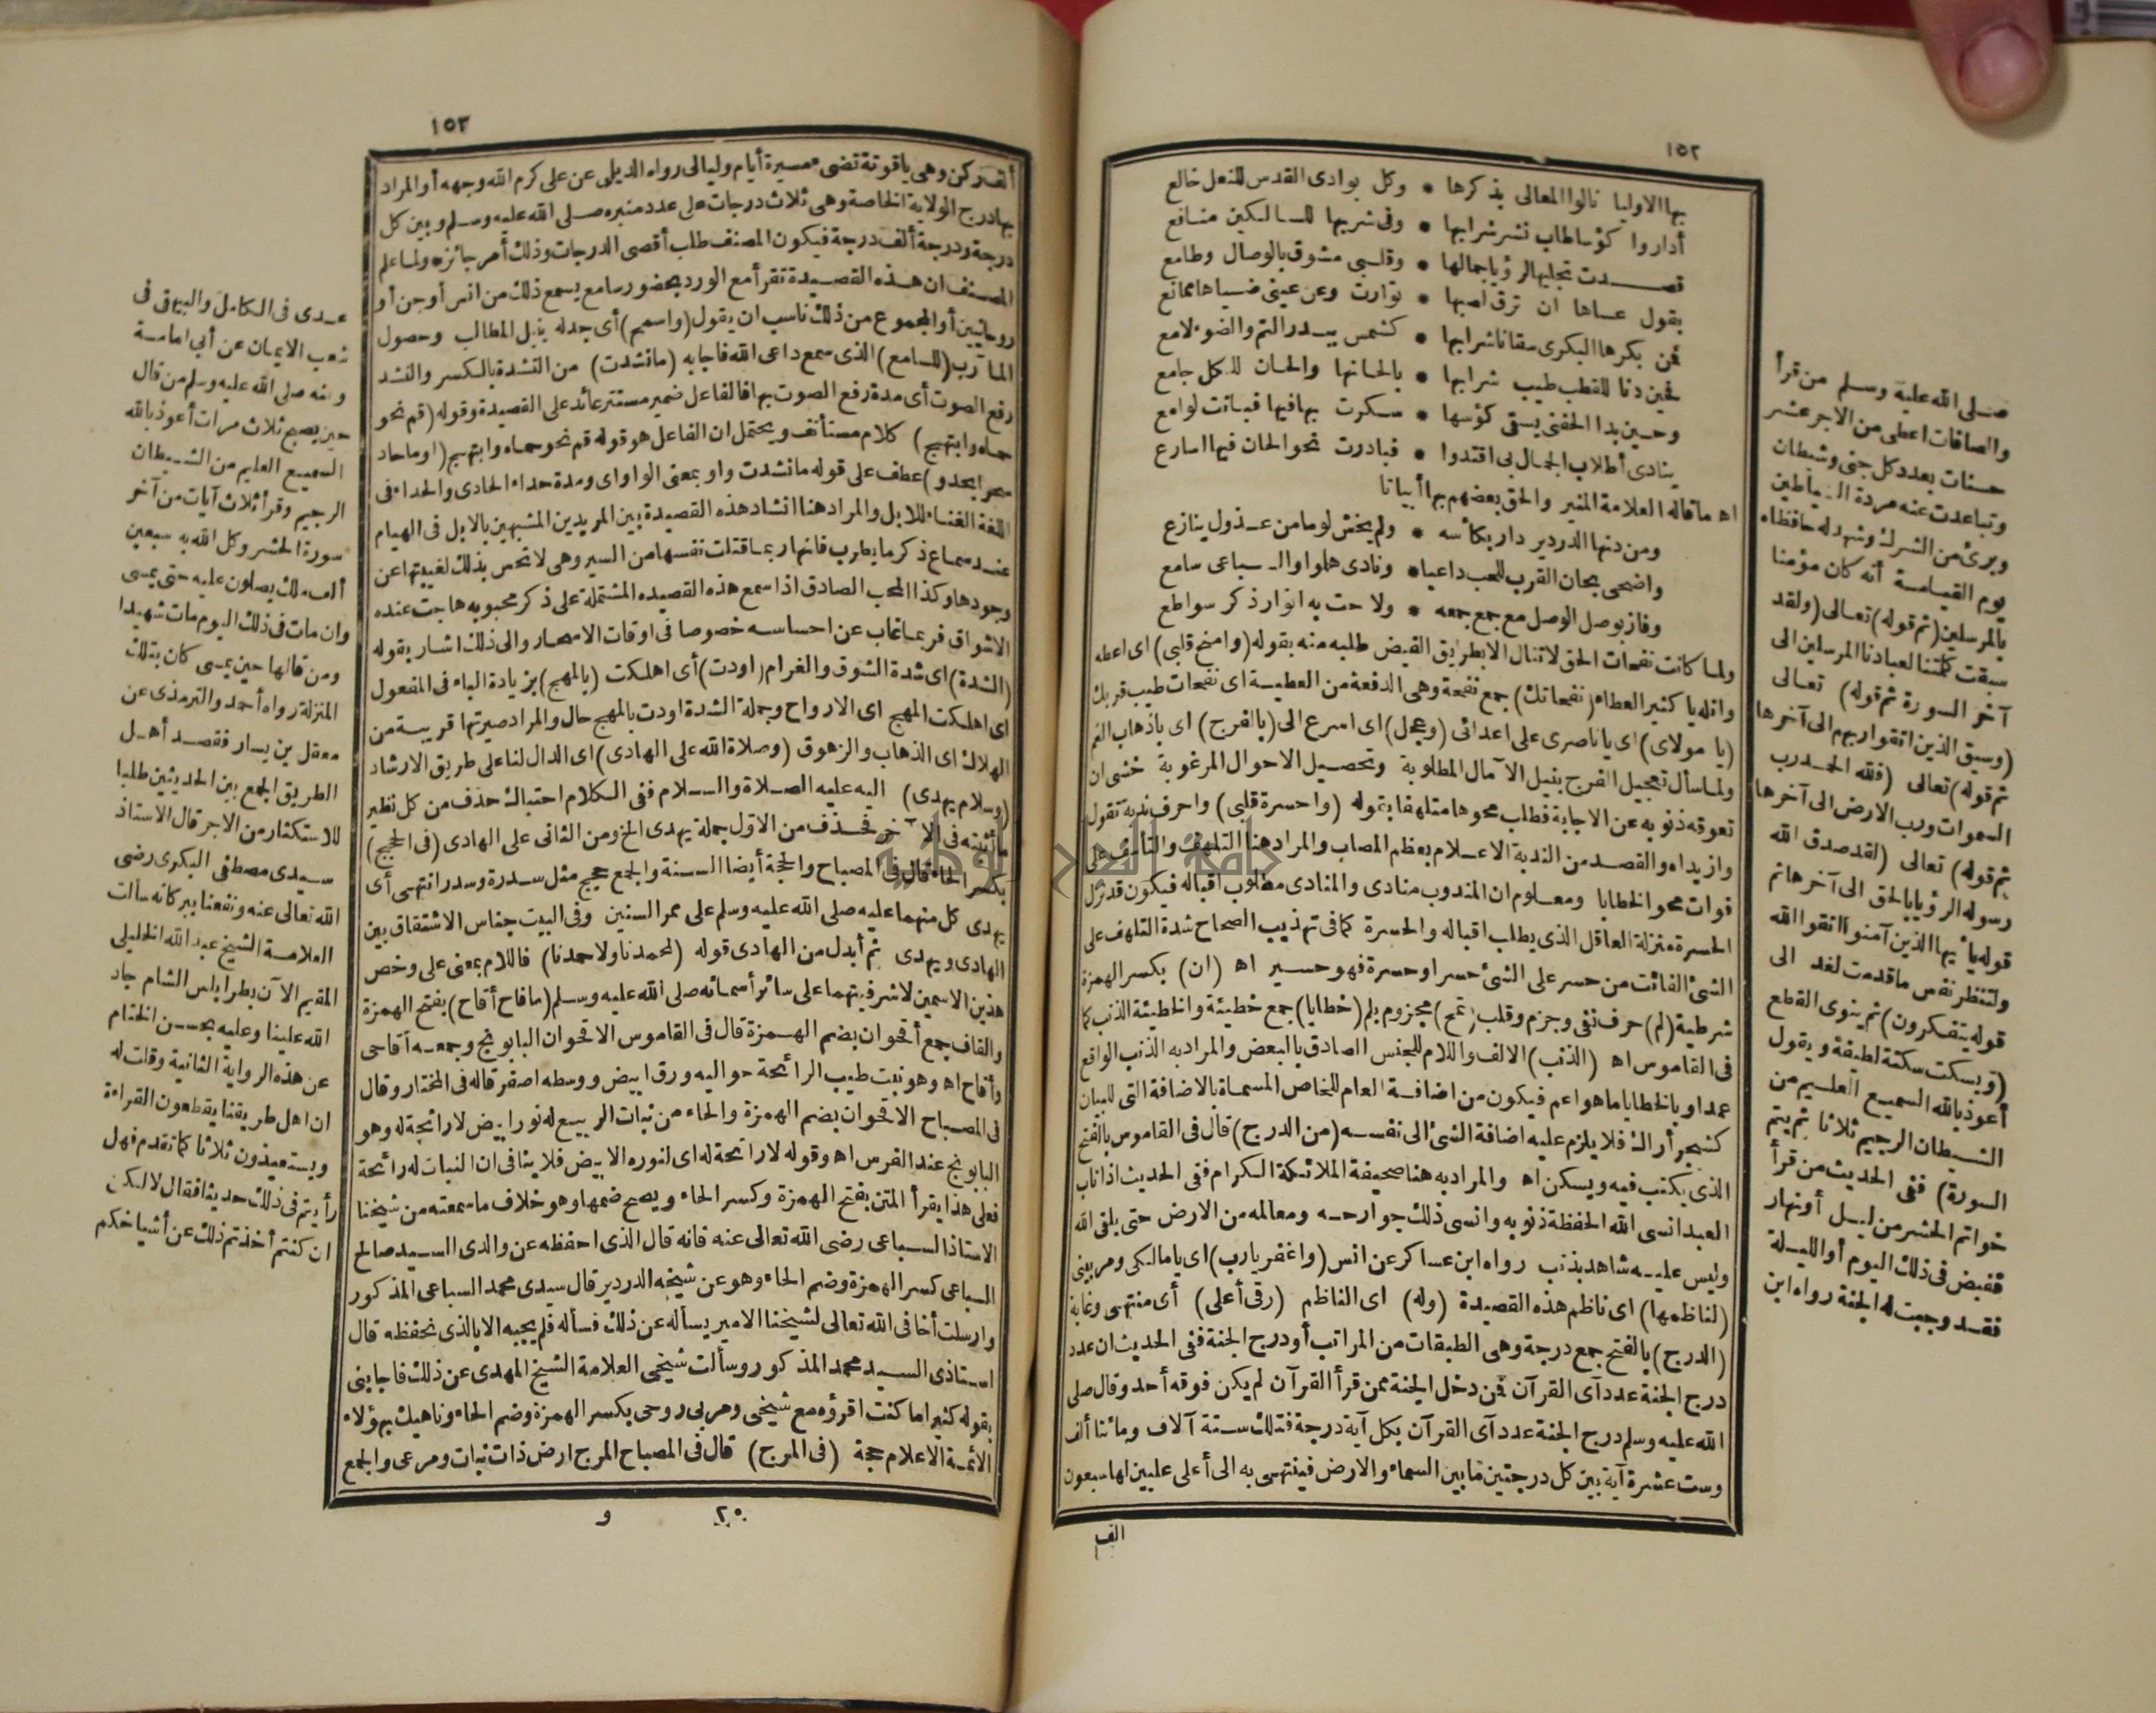 ١٥٢
بها الاوليا نالوا المعالى بذكرها * وكل بوادى القدس للنعل خالع
أداروا كؤسا طاب نشر شرابها * وفى شربها للسالكين منافع
قصدت تجليها لرؤيا جمالها * وقلبى مشوق بالوصال وطامع
يقول عساها ان ترق لصبها * توارت وعن عينى ضياها مانع
فمن بكرها البكرى سقانا شرابها * كشمس ببدر التم والضوء لامع
فحين دنا للقطب طيب شرابها * بالحانها والحان للكل جامع
وحين بدا الحفنى يسقى كؤسها * سكرت بها فيها فبانت لوامع
ينادى أطلاب الجمال بى اقتدوا * فبادرت نحو الحان فيها اسارع
اه ما قاله العلامة المنير والحق بعضهم بها أبياتا
ومن دنها الدردير دار بكأسه * ولم يخش لوما من عذول ينازع
واضحى بحان القرب للحب داعيا * ونادى هلموا والسباعى سامع
وفاز بوصل الوصل مع جمع جمعه * ولاحت به انوار ذكر سواطع
ولما كانت نفحات الحق لا تنال الا بطريق الفيض طلبه منه بقوله (وامنح قلبى) اى اعطه
وانله يا كثير العطاء (نفحاتك) جمع نفحة وهى الدفعة من العطية اى نفحات طيب قربك
(يا مولاى) اى يا ناصرى على اعدائى (وعجل) اى اسرع الى (بالفرج) اى باذهاب الغم
ولما سأل تعجيل الفرج بنيل الآمال المطلوبة وتحصيل الاحوال المرغوبة خشى ان
تعوقه ذنوبه عن الاجابة فطلب محوها متلهفا بقوله (واحسرة قلبى) واحرف ندبة تقول
وازيداه والقصد من الندبة الاعلام بعظم المصاب والمراد هنا التلهف والتأسف على
فوات محو الخطايا ومعلوم ان المندوب منادى والمنادى مطلوب اقباله فيكون قد نزل
الحسرة منزلة العاقل الذى يطلب اقباله والحسرة كما فى تهذيب الصحاح شدة التلهف على
الشئ الفائت من حسر على الشئ حسرا وحسرة فهو حسير اه (ان) بكسر الهمزة
شرطية (لم) حرف نفى وجزم وقلب (تمح) مجزوم بلم (خطايا) جمع خطيئة والخطيئة الذنب كما
فى القاموس اه (الذنب) الالف واللام للجنس الصادق بالبعض والمراد به الذنب الواقع
عمدا وبالخطايا ما هو اعم فيكون من اضافة العام للخاص المسماة بالاضافة التى للبيان
كشجر أراك فلا يلزم عليه اضافة الشئ الى نفسه (من الدرج) قال فى القاموس بالفتح
الذى يكتب فيه ويسكن اه والمراد به هنا صحيفة الملائكة الكرام ففى الحديث اذا تاب
العبد انسى الله الحفظة ذنوبه وانسى ذلك جوارحه ومعالمه من الارض حتى يلقى الله
وليس عليه شاهد بذنب رواه ابن عساكر عن انس (واغفر يارب) اى يا مالكى ومربينى
(لناظمها) اى ناظم هذه القصيدة (وله) اى الناظم (رقى أعلى) أى منتهى وغاية
(الدرج) بالفتح جمع درجة وهى الطبقات من المراتب أو درج الجنة ففى الحديث ان عدد
درج الجنة عدد آى القرآن فمن دخل الجنة ممن قرأ القرآن لم يكن فوقه أحد وقال صلى
الله عليه وسلم درج الجنة عدد آى القرآن بكل آية درجة فتلك ستة آلاف ومائتا ألف
وست عشرة آية بين كل درجتين ما بين السماء والارض فينتهى به الى أعلى عليين لها سبعون
الف
صلى الله عليه وسلم من قرأ
والصافات اعطى من الاجر عشر
حسنات بعدد كل جنى وشيطان
وتباعدت عنه مردة الشياطين
وبرئ من الشرك وشهد له حافظاه
يوم القيامة أنه كان مؤمنا
بالمرسلين (ثم قوله) تعالى (ولقد
سبقت كلمتنا لعبادنا المرسلين الى
آخر السورة ثم قوله) تعالى
(وسيق الذين اتقوا ربهم الى آخرها
ثم قوله) تعالى (فلله الحمد رب
السموات ورب الارض الى آخرها
ثم قوله) تعالى (لقد صدق الله
رسوله الرؤيا بالحق الى آخرها ثم
قوله يا أيها الذين آمنوا اتقوا الله
ولتنظر نفس ما قدمت لغد الى
قوله يتفكرون) ثم ينوى القطع
(ويسكت سكتة لطيفة ويقول
أعوذ بالله السميع العليم من
الشيطان الرجيم ثلاثا ثم يتم
السورة) ففى الحديث من قرأ
خواتم الحشر من ليل أو نهار
فقبض فى ذلك اليوم أو الليلة
فقد وجبت له الجنة رواه ابن
١٥٣
ألف ركن وهى ياقوتة تضىء مسيرة أيام وليالى رواه الديلمى عن على كرم الله وجهه أو المراد
بها درج الولاية الخاصة وهى ثلاث درجات على عدد منبره صلى الله عليه وسلم وبين كل
درجة ودرجة ألف درجة فيكون المصنف طلب أقصى الدرجات وذلك أمر جائز ولما علم
المصنف ان هذه القصيدة تقرأ مع الورد بحضور سامع يسمع ذلك من انس أو جن أو
روحانيين أو المجموع من ذلك ناسب ان يقول (واسمح) أى جد له بنيل المطالب وحصول
المآرب (للسامع) الذى سمع داعى الله فاجابه (ما نشدت) من النشدة بالكسر والنشد
رفع الصوت أى مدة رفع الصوت بها فالفاعل ضمير مستتر عائد على القصيدة وقوله (قم نحو
حماه وابتهج) كلام مستأنف ويحتمل ان الفاعل هو قوله قم نحو حماه وابتهج (او ما حاد
سحرا يحدو) عطف على قوله ما نشدت واو بمعنى الواو اى ومدة حداء الحادى والحداء فى
اللغة الغناء للابل والمراد هنا انشاد هذه القصيدة بين المريدين المشبهين بالابل فى الهيام
عند سماع ذكر ما يطرب فانها ربما قتلت نفسها من السير وهى لا تحس بذلك لغيبتها عن
وجودها وكذا المحب الصادق اذا سمع هذه القصيده المشتملة على ذكر محبوبه هاجت عنده
الاشواق فربما غاب عن احساسه خصوصا فى اوقات الاسحار والى ذلك اشار بقوله
(الشدة) اى شدة الشوق والغرام (اودت) أى اهلكت (بالمهج) بزيادة الباء فى المفعول
اى اهلكت المهج اى الارواح وجملة الشدة اودت بالمهج حال والمراد صيرتها قريبة من
الهلاك اى الذهاب والزهوق (وصلاة الله على الهادى) اى الدال لنا على طريق الارشاد
(وسلام يهدى) اليه عليه الصلاة والسلام ففى الكلام احتباك حذف من كل نظير
ما أثبته فى الآخر فحذف من الاول جملة يهدى الخ ومن الثانى على الهادى (فى الحجج)
بكسر الحاء قال فى المصباح والحجة أيضا السنة والجمع حجج مثل سدرة وسدر انتهى أى
يهدى كل منهما عليه صلى الله عليه وسلم على ممر السنين وفى البيت جناس الاشتقاق بين
الهادى ويهدى ثم أبدل من الهادى قوله (لمحمدنا ولاحمدنا) فاللام بمعنى على وخص
هذين الاسمين لاشرفيتهما على سائر أسمائه صلى الله عليه وسلم (ما فاح أقاح) بفتح الهمزة
والقاف جمع أقحوان بضم الهمزة قال فى القاموس الاقحوان البابونج وجمعه أقاحى
وأقاح اه وهو نبت طيب الرائحة حواليه ورق ابيض ووسطه اصفر قاله فى المختار وقال
فى المصباح الاقحوان بضم الهمزة والحاء من نبات الربيع له نور ابيض لا رائحة له وهو
البابونج عند الفرس اه وقوله لا رائحة له اى لنوره الابيض فلا ينافى ان النبات له رائحة
فعلى هذا يقرأ المتن بفتح الهمزة وكسر الحاء ويصح ضمها وهو خلاف ما سمعته من شيخنا
الاستاذ السباعى رضى الله تعالى عنه فانه قال الذى احفظه عن والدى السيد صالح
السباعى كسر الهمزة وضم الحاء وهو عن شيخه الدردير قال سيدى محمد السباعى المذكور
وارسلت أخا فى الله تعالى لشيخنا الامير يسأله عن ذلك فسأله فلم يجبه الا بالذى نحفظه قال
استاذى السيد محمد المذكور وسألت شيخى العلامة الشيخ المهدى عن ذلك فاجابنى
بقوله كثيرا ما كنت اقرؤه مع شيخى ومربى روحى بكسر الهمزة وضم الحاء وناهيك بهؤلاء
الأئمة الاعلام حجة (فى المرج) قال فى المصباح المرج ارض ذات نبات ومرعى والجمع
٢٠
و
عدى فى الكامل والبيهقى فى
شعب الايمان عن أبى امامة
وعنه صلى الله عليه وسلم من قال
حين يصبح ثلاث مرات أعوذ بالله
السميع العليم من الشيطان
الرجيم وقرأ ثلاث آيات من آخر
سورة الحشر وكل الله به سبعين
ألف ملك يصلون عليه حتى يمسى
وان مات فى ذلك اليوم مات شهيدا
ومن قالها حين يمسى كان بتلك
المنزلة رواه أحمد والترمذى عن
معقل بن يسار فقصد أهل
الطريق الجمع بين الحديثين طلبا
للاستكثار من الاجر قال الاستاذ
سيدى مصطفى البكرى رضى
الله تعالى عنه ونفعنا ببركاته سألت
العلامة الشيخ عبد الله الخليلى
المقيم الآن بطرابلس الشام جاد
الله علينا وعليه بحسن الختام
عن هذه الرواية الثانية وقلت له
ان اهل طريقنا يقطعون القراءة
ويستعيذون ثلاثا كما تقدم فهل
رأيتم فى ذلك حديثا فقال لا لكن
ان كنتم أخذتم ذلك عن أشياخكم